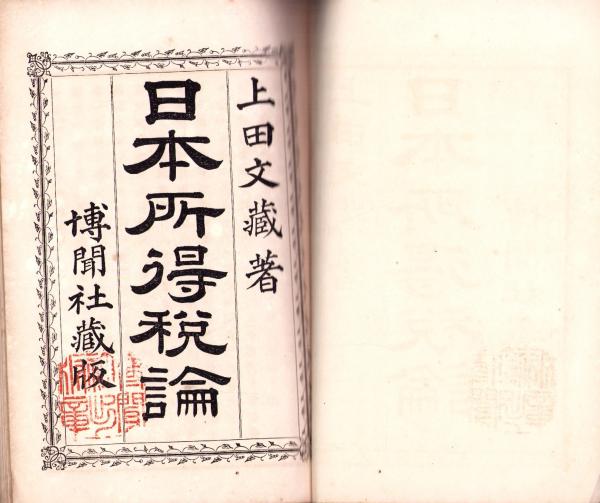 上田文藏著
日本所得税論
博聞社藏版